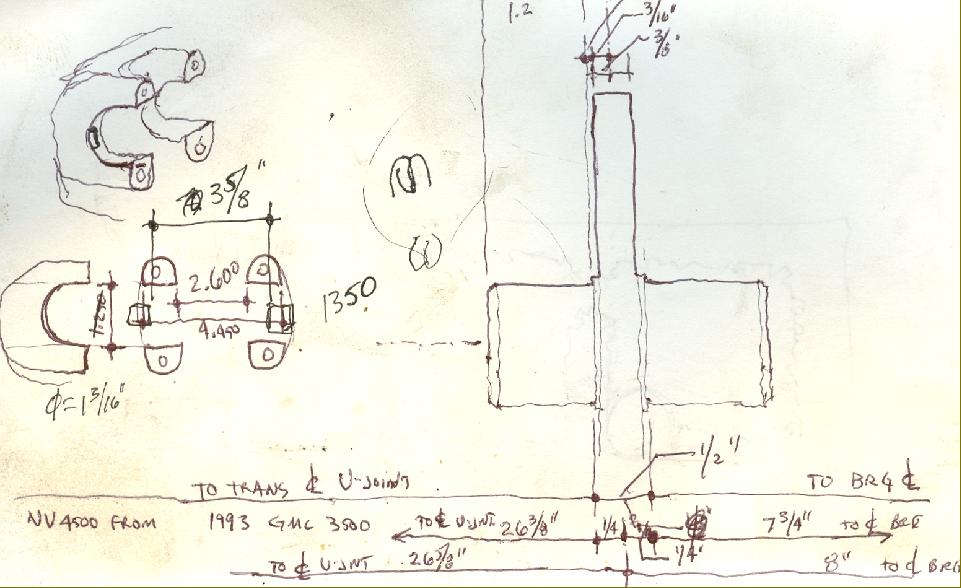 1.2
3/16"
3/8"
3 5/8"
2.600
4.490
1350
ϕ=1 3/16"
1/2"
TO TRANS ℄ U-JOINT
TO BRG ℄
NV4500 FROM 1993 GMC 3500
TO ℄ U-JNT 26 3/8" 1/4
7 3/4" TO ℄ BRG
1/4"
TO ℄ U-JNT 26 5/8"
8" TO ℄ BRG